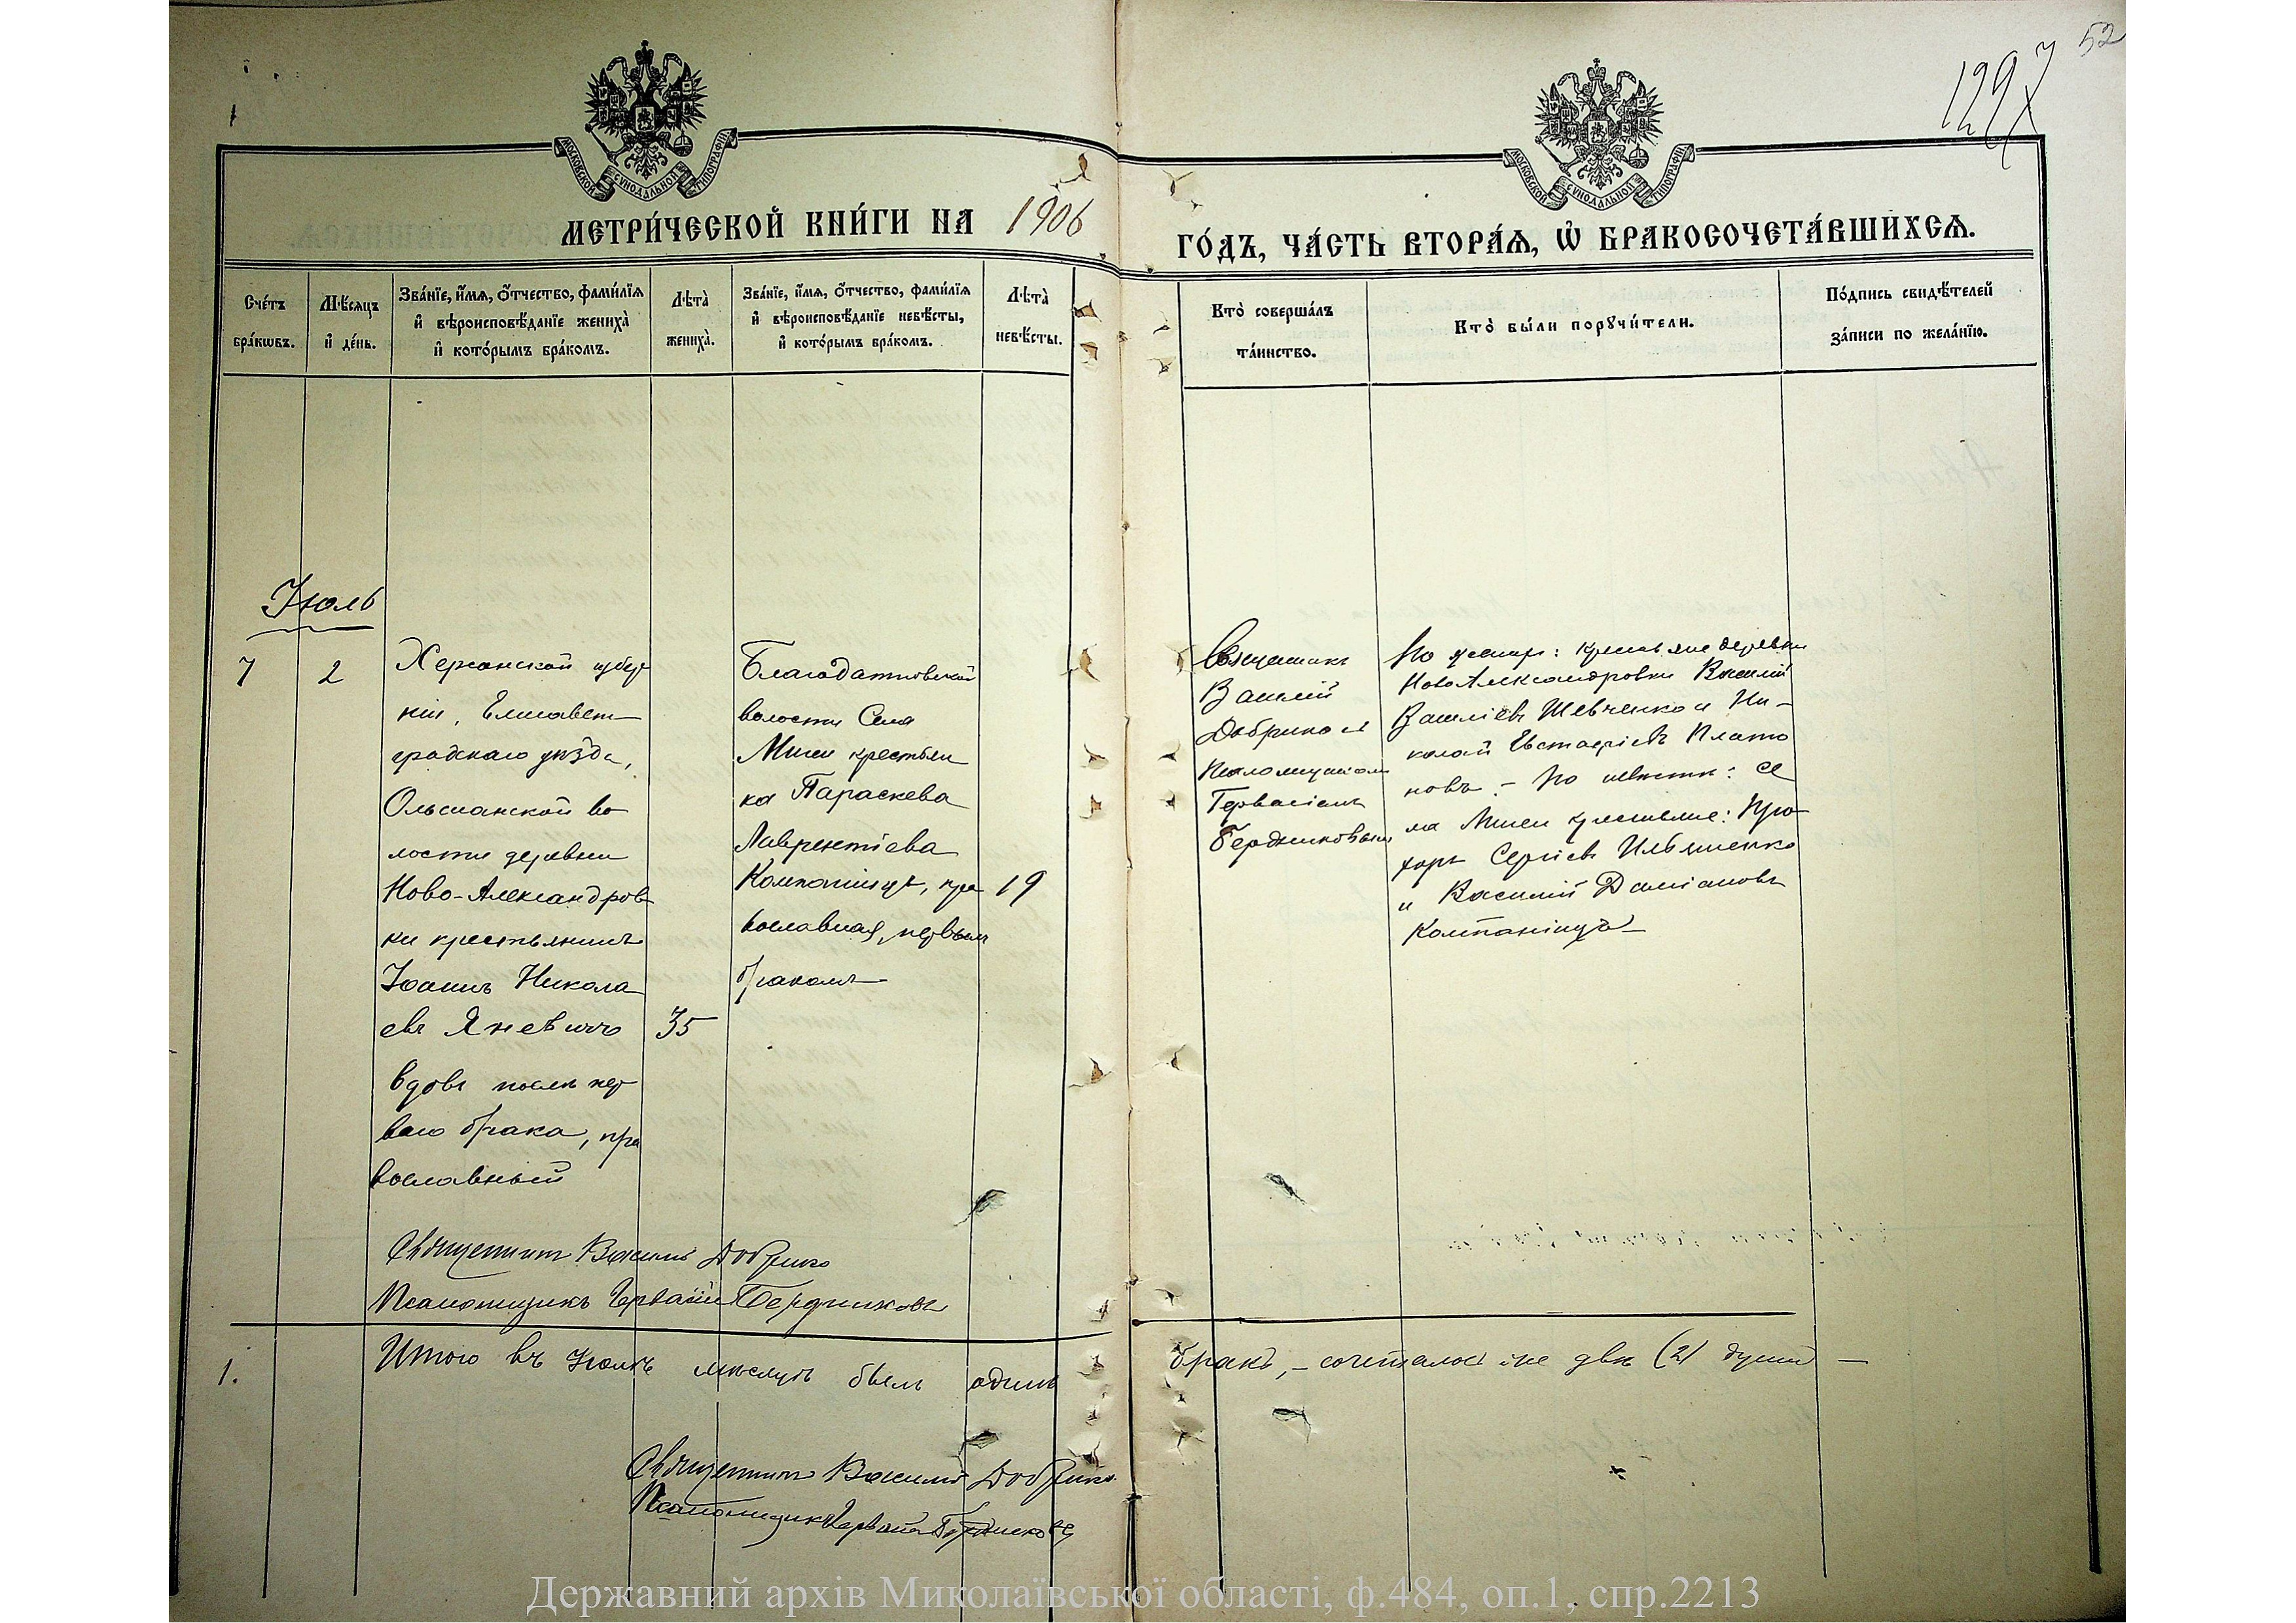 52
1297
МОСКОВСКОЙ СУНОДАЛЬНОЙ ТИПОГРАФІИ
МОСКОВСКОЙ СУНОДАЛЬНОЙ ТИПОГРАФІИ
МЕТРИ́ЧЕСКОЙ КНИ́ГИ НА 1906
ГО́ДЪ, ЧА́СТЬ ВТОРА́Ѧ, Ѡ҆ БРАКОСОЧЕТА́ВШИХСѦ.
Сче́тъ
бра́кѡвъ.
Мѣ́сяцъ
и҆ де́нь.
Зва́нїе, и҆́мѧ, ѻ҆́тчество, фами́лїѧ
и҆ вѣроисповѣ́данїе жениха̀
и҆ кото́рымъ бра́комъ.
Лѣта̀
жениха̀.
Зва́нїе, и҆́мѧ, ѻ҆́тчество, фами́лїѧ
и҆ вѣроисповѣ́данїе невѣ́сты,
и҆ кото́рымъ бра́комъ.
Лѣта̀
невѣ́сты.
Кто̀ соверша́лъ
та́инство.
Кто̀ бы́ли порꙋчи́тели.
По́дпись свидѣ́телей
за́писи по жела́нїю.
Іюль
7
2
Херсонской губер
ніи, Елисавет
градскаго уѣзда,
Ольшанской во
лости деревни
Ново-Александров
ки крестьянинъ
Іоаннъ Никола
евъ Яневичъ
вдовъ послѣ пер
ваго брака, пра
вославный
35
Благодатновской
волости Села
Мигеи крестьян
ка Параскева
Лаврентіева
Компаніецъ, пра
вославная, первымъ
бракомъ
19
Священникъ
Василій
Добрино съ
Псаломщикомъ
Гервасіемъ
Бердниковымъ
По жениху: крестьяне деревни
НовоАлександровки Василій
Василіевъ Шевченко и Ни-
колай Евстафіевъ Плато
новъ. - По невѣстѣ: се
ла Мигеи крестьяне: Про-
хоръ Сергіевъ Ильяшенко
и Василій Даміановъ
Компаніецъ
Священникъ Василій Добрино
Псаломщикъ Гервасій Бердниковъ
1.
Итого въ Іюлѣ мѣсяцѣ былъ одинъ
бракъ, - сочеталось же двѣ (2) души -
Священникъ Василій Добрино
Псаломщикъ Гервасій Бердниковъ
Державний архів Миколаївської області, ф.484, оп.1, спр.2213